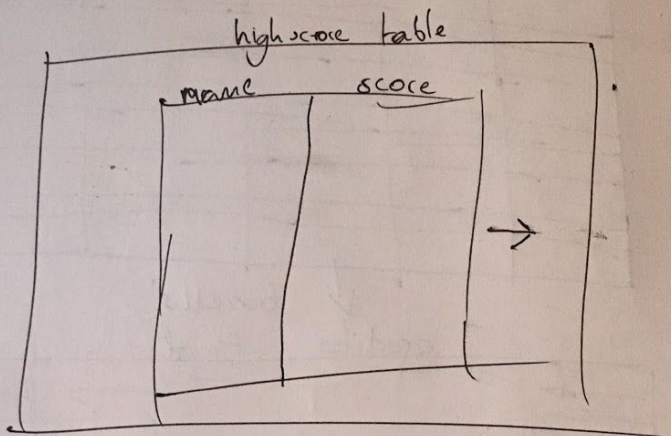 highscore table
name score